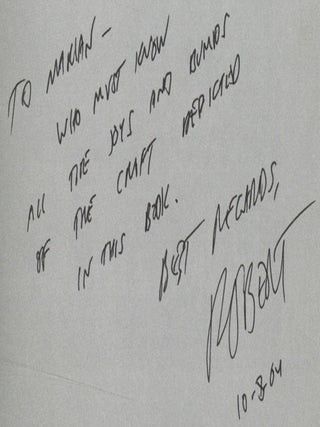 TO MARIAN –
WHO MUST KNOW
ALL THE JOYS AND BUMPS
OF THE CRAFT DEPICTED
IN THIS BOOK.
BEST REGARDS,
ROBERT
10-8-04